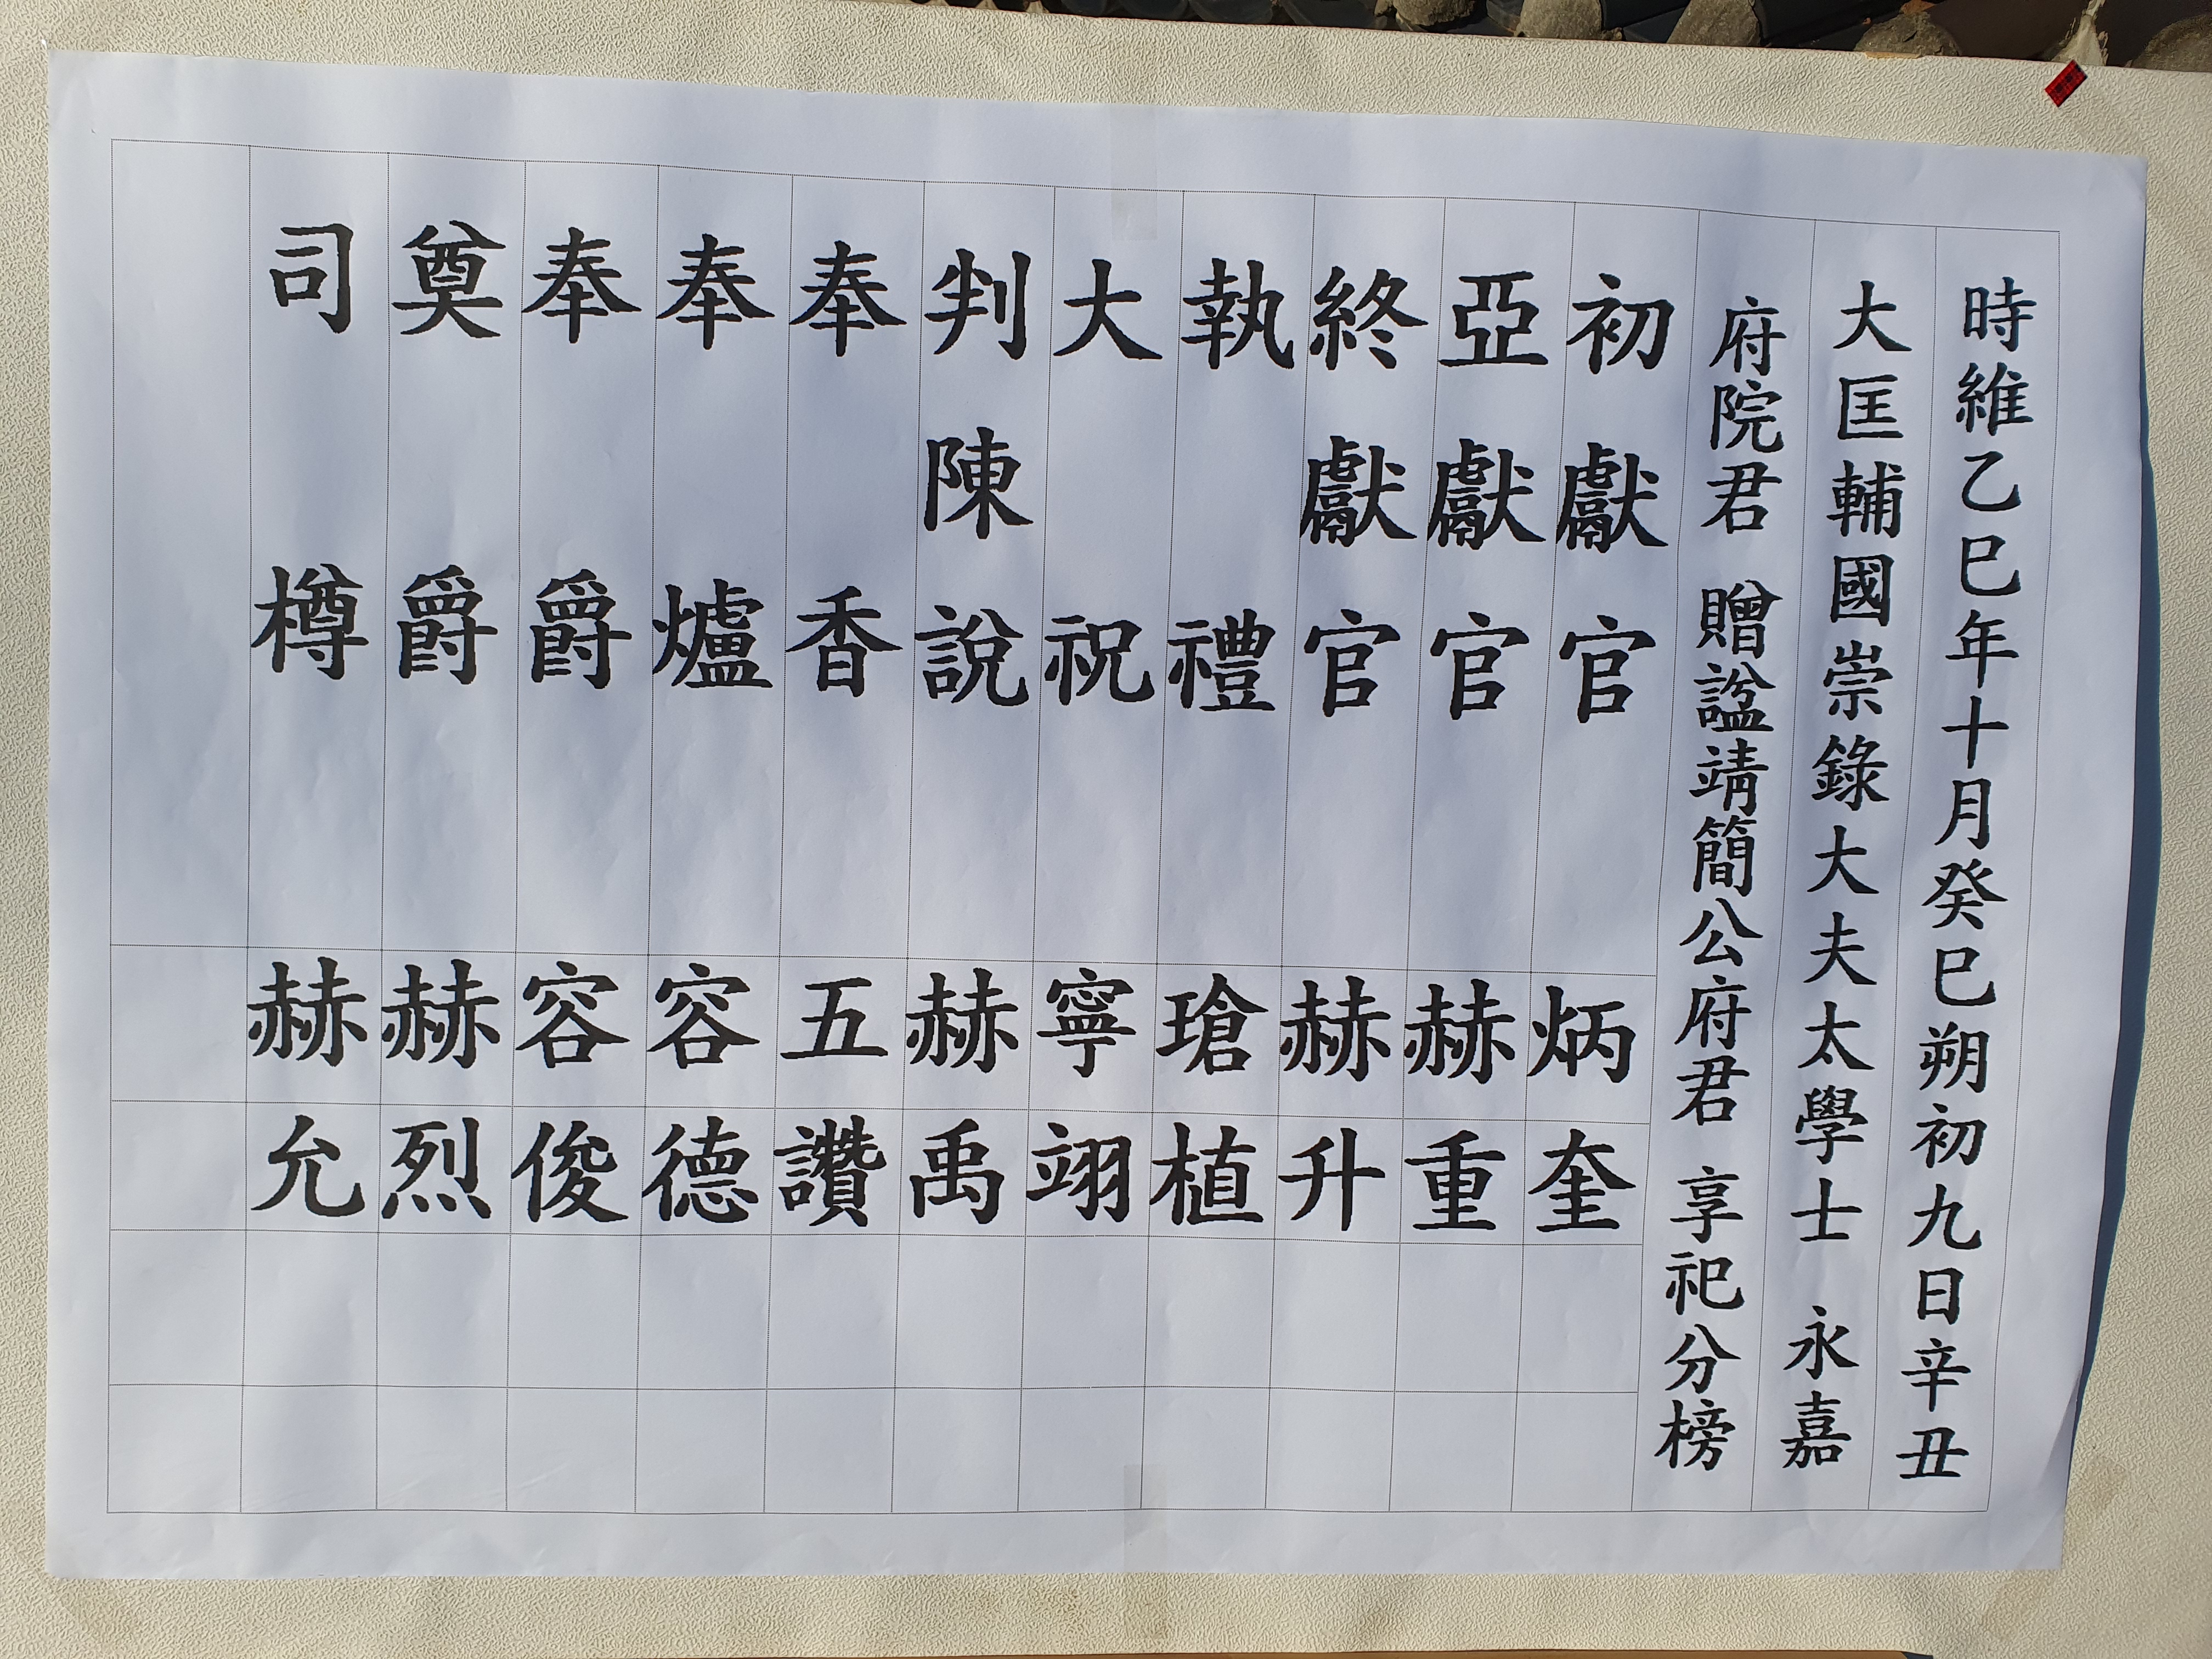 時維乙巳年十月癸巳朔初九日辛丑
大匡輔國崇錄大夫太學士 永嘉
府院君 贈諡靖簡公府君 享祀分榜
初獻官 炳奎
亞獻官 赫重
終獻官 赫升
執禮 瑲植
大祝 寧翊
判陳說 赫禹
奉香 五讚
奉爐 容德
奉爵 容俊
奠爵 赫烈
司樽 赫允